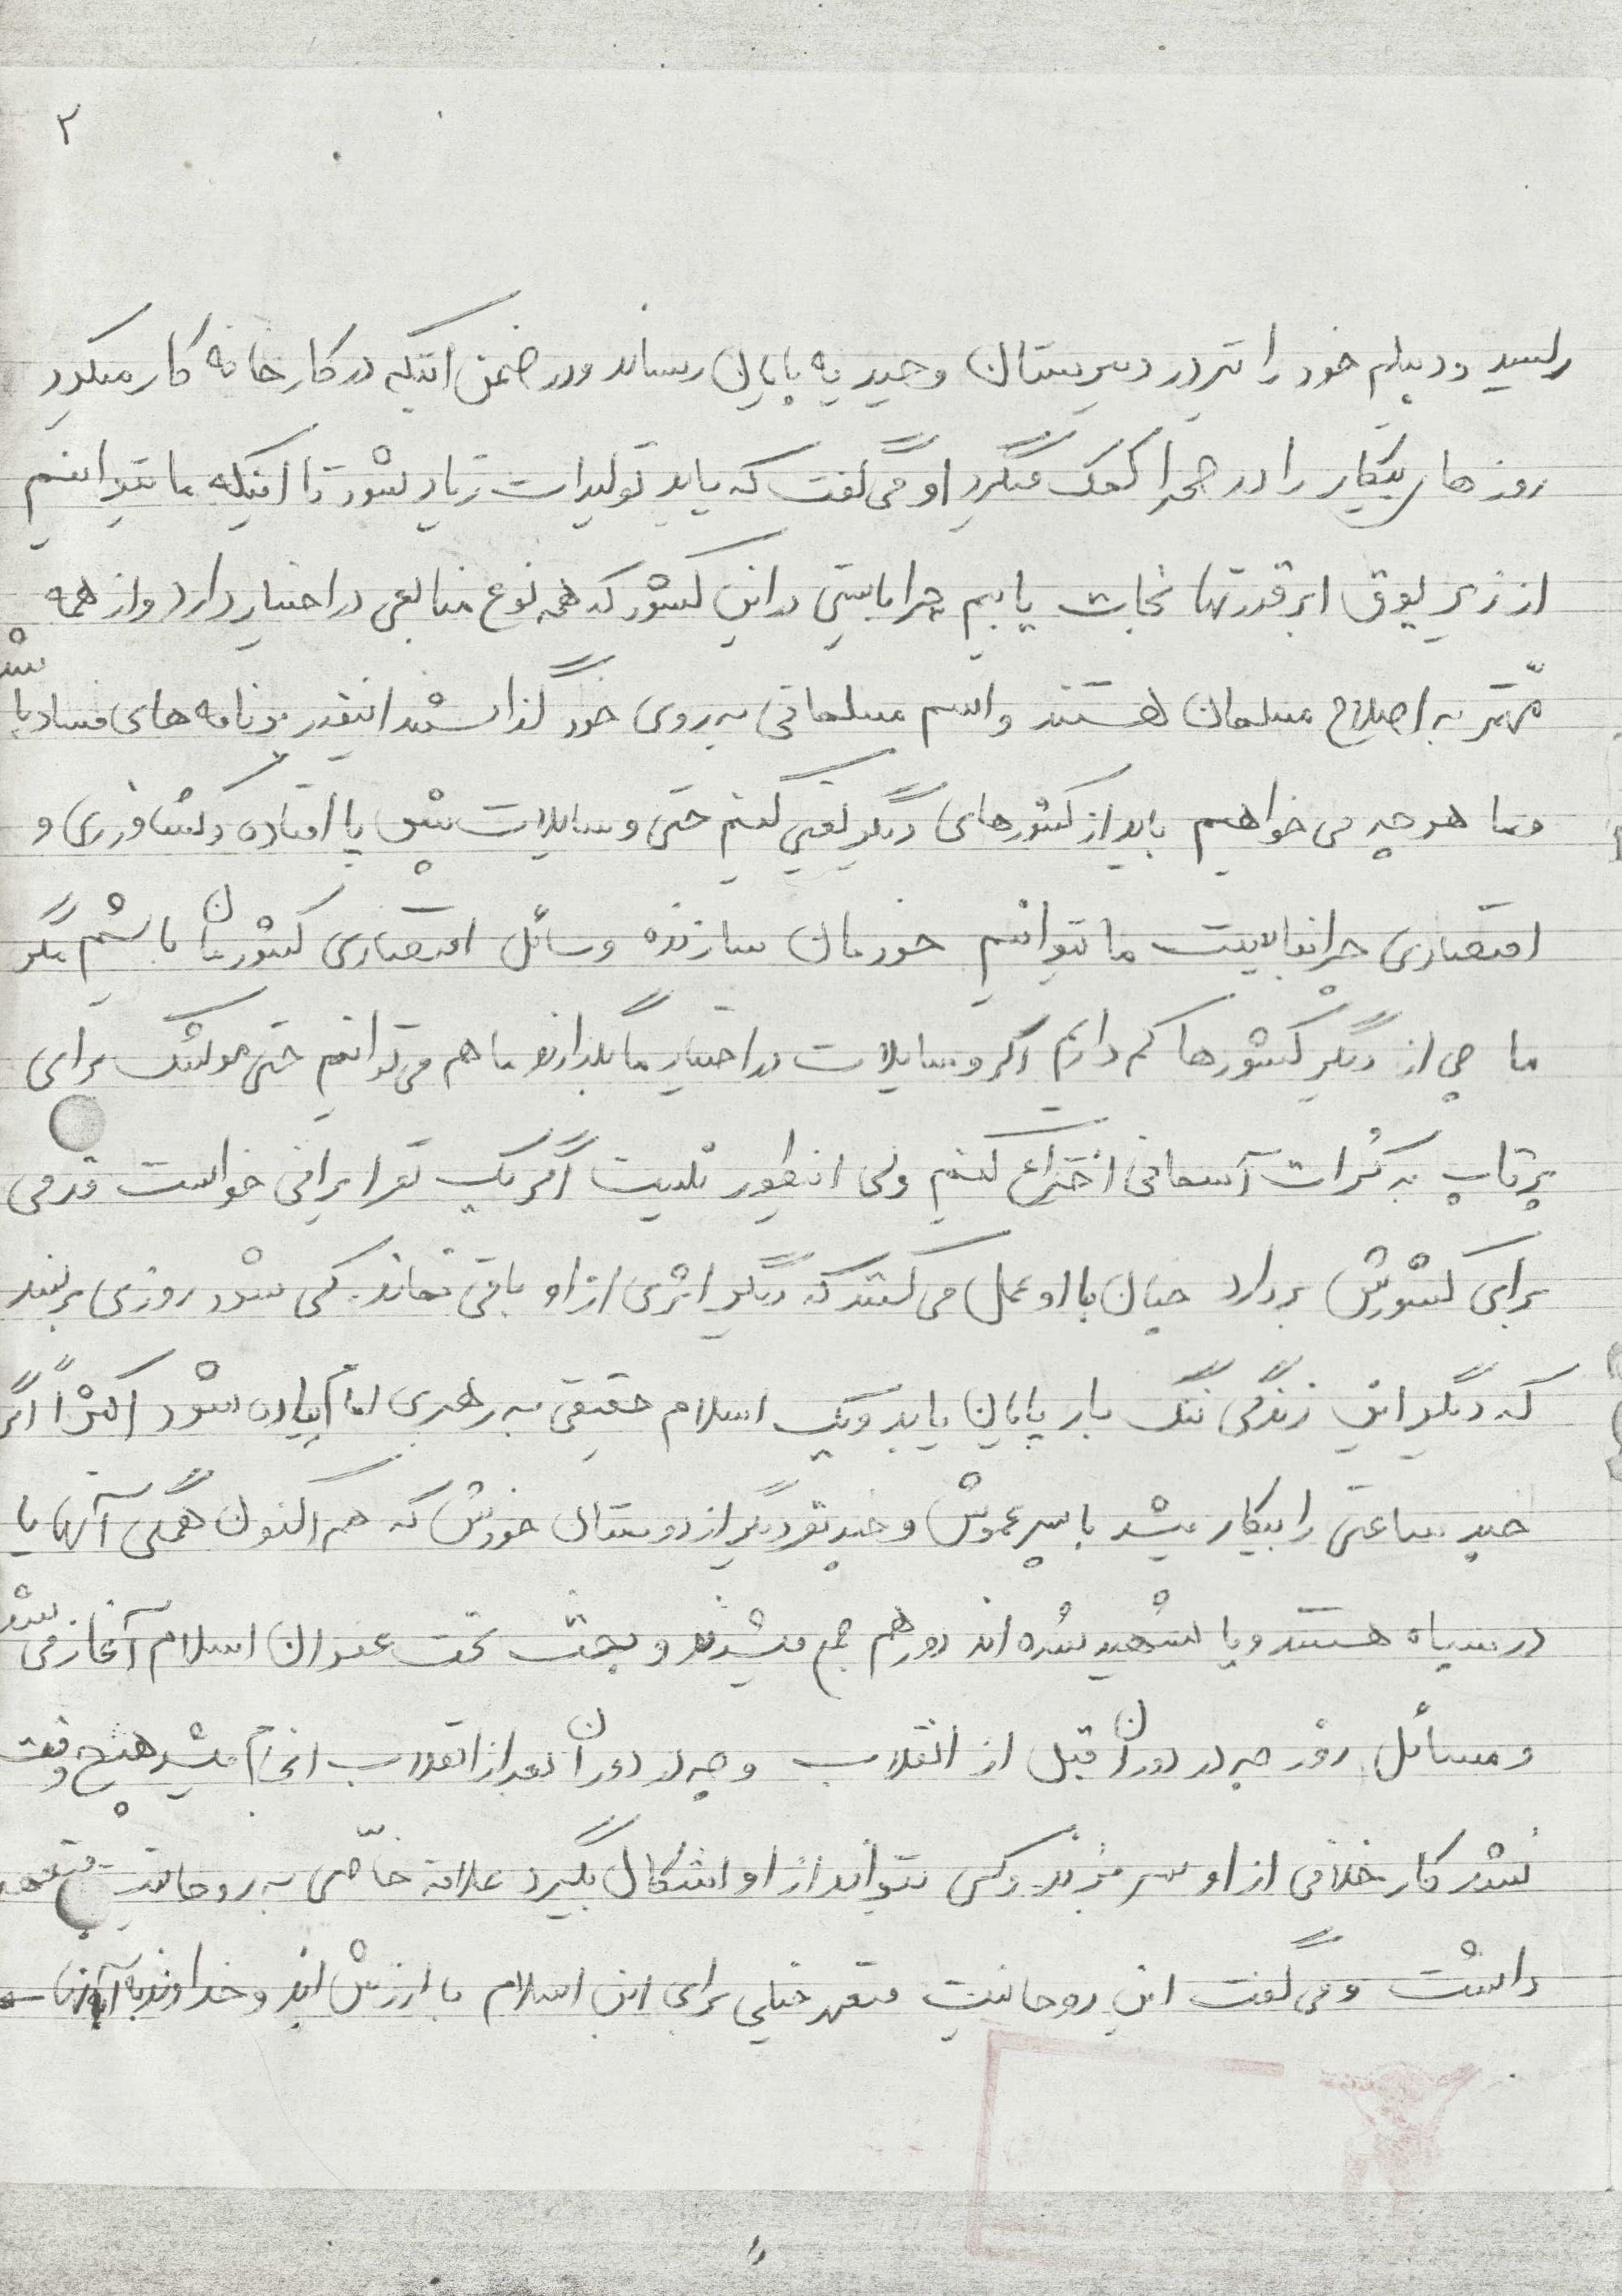 ۲
رسید و دیپلم خود را نیز در دبیرستان وحید به پایان رساند و در ضمن اینکه در کارخانه کار میکرد
روزها بیکار را در صحرا کمک میکرد او می گفت که باید تولیدات زیاد بشود تا اینکه ما بتوانیم
از زیر یوق ابرقدرتها نجات یابیم چرا بایستی در این کشور که همه نوع منابعی در اختیار دارد و از همه
مهمتر به اصلاح مسلمان هستند و اسم مسلمانی به روی خود گذاشتند اینقدر برنامه های فساد باشد
و ما هر چه می خواهیم باید از کشورهای دیگر کنیم حتی وسایلات پیش پا افتاده کشاورزی و
اقتصادی چرا نبایست ما بتوانیم خودمان سازنده وسائل اقتصادی کشورمان باشیم مگر
ما چی از دیگر کشورها کم داریم اگر وسایلات در اختیار ما بگذارند ما هم می توانیم حتی موشک برای
پرتاب به کرات آسمانی اختراع کنیم ولی اینطور نیست اگر یک نفر ایرانی خواست قدمی
برای کشورش بردارد چنان با او عمل می کنند که دیگر اثری از او باقی نماند. کی شود روزی برسد
که دیگر این زندگی ننگ بار پایان یابد و یک اسلام حقیقی به رهبری امام پیاده شود اکثراً اگر
چند ساعتی را بیکار میشد با پسر عموش و چند نفر دیگر از دوستان خودش که هم اکنون همگی آنها یا
در سپاه هستند و یا شهید شده اند دور هم جمع میشدند و بحث تحت عنوان اسلام آغاز می شد
و مسائل روز چه در دوران قبل از انقلاب و چه در دوران بعد از انقلاب انجام میشد هیچ وقت
نشد کار خلافی از او سر بزند و کسی بتواند از او اشکال بگیرد علاقه خاصّی به روحانیت متعهد
داشت و می گفت این روحانیت متعهد خیلی برای این اسلام با ارزش اند و خداوند به آنها